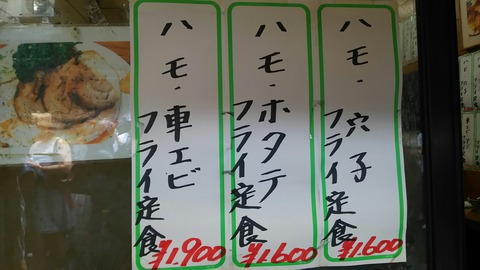 ハモ・穴子
フライ定食
¥1,600
ハモ・ホタテ
フライ定食
¥1,600
ハモ・車エビ
フライ定食
¥1,900